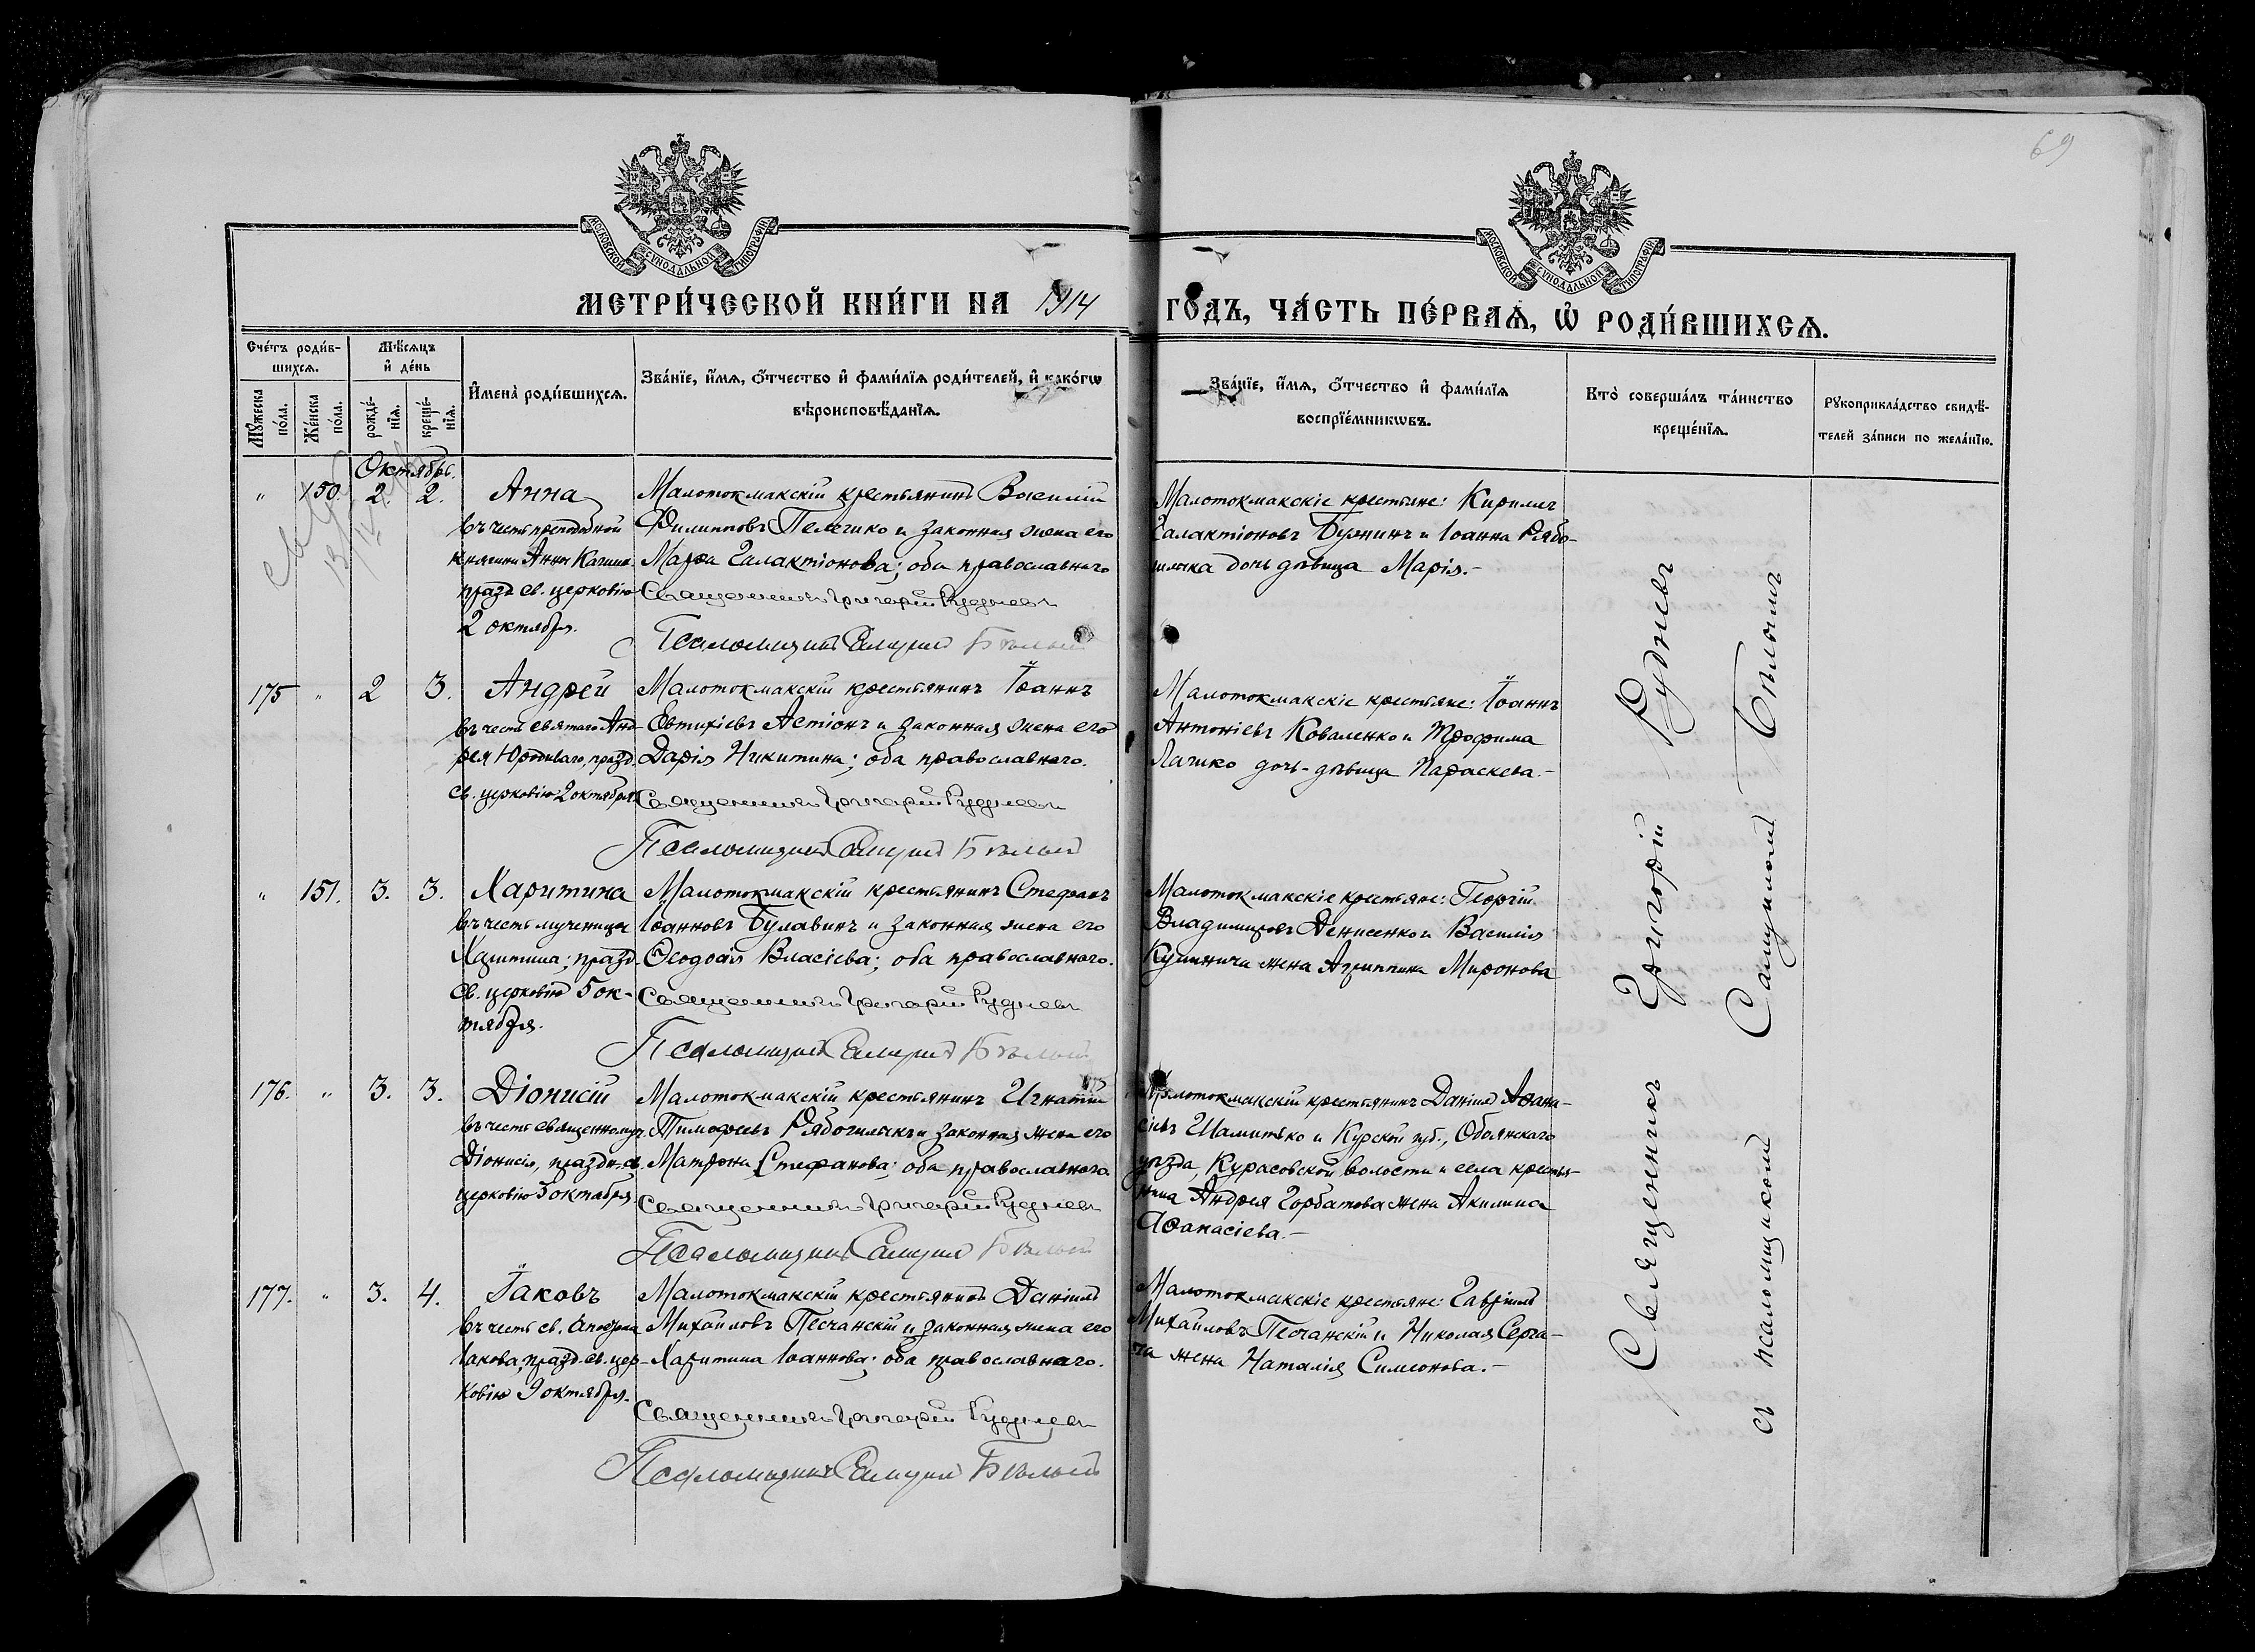 69
МОСКОВСКОЙ СѴНОДАЛЬНОЙ ТИПОГРАФІИ
МОСКОВСКОЙ СѴНОДАЛЬНОЙ ТИПОГРАФІИ
МЕТРИ́ЧЕСКОЙ КНИ́ГИ НА 1914
ГОДЪ, ЧА́СТЬ ПЕ́РВАѦ, Ѡ҆ РОДИ́ВШИХСѦ.
Сче́тъ роди́в-
шихсѧ.
Мѣ́сѧцъ
и҆ де́нь
Мꙋ́жеска
по́ла.
Же́нска
по́ла.
рожде́-
нїѧ.
креще́-
нїѧ.
И҆мена̀ роди́вшихсѧ.
Зва́нїе, и҆́мѧ, ѻ҆́тчество и҆ фами́лїѧ роди́телей, и҆ како́гѡ
вѣроисповѣ́данїѧ.
Зва́нїе, и҆́мѧ, ѻ҆́тчество и҆ фами́лїѧ
воспрїе́мникѡвъ.
Кто̀ соверша́лъ та́инство
креще́нїѧ.
Рꙋкоприкла́дство свидѣ́-
телей за́писи по жела́нїю.
Октябрь.
" 150. 2. 2. Анна
въ честь преподобной
княгини Анны Кашин.
празд. св. церковію
2 октября.
Малотокмакскій крестьянинъ Василій
Филипповъ Пелешко и законная жена его
Марѳа Галактіонова; оба православнаго
Священникъ Григорій Рудневъ
Псаломщикъ Самуилъ Бѣлый
Малотокмакскіе крестьяне: Кириллъ
Галактіоновъ Бужинъ и Іоанна Рябо-
шлыка дочь дѣвица Марія.-
175 " 2 3. Андрей
въ честь святаго Анд-
рея Юродиваго, празд.
св. церковію 2 октября
Малотокмакскій крестьянинъ Іоаннъ
Евтихіевъ Астіонъ и законная жена его
Дарія Никитина; оба православнаго.
Священникъ Григорій Рудневъ
Псаломщикъ Самуилъ Бѣлый
Малотокмакскіе крестьяне: Іоаннъ
Антоніевъ Коваленко и Трофима
Лашко дочь-дѣвица Параскева.-
" 151. 3. 3. Харитина
въ честь мученицы
Харитины; празд.
св. церковію 5 ок-
тября.
Малотокмакскій крестьянинъ Стефанъ
Іоанновъ Булавинъ и законная жена его
Ѳеодосія Власіева; оба православнаго.
Священникъ Григорій Рудневъ
Псаломщикъ Самуилъ Бѣлый
Малотокмакскіе крестьяне: Георгій
Владиміровъ Денисенко и Василія
жена Агриппина Миронова
176. " 3. 3. Діонисій
въ честь священномуч.
Діонисія, празднъ св.
церковію 3 октября.
Малотокмакскій крестьянинъ Игнатій
Тимофеевъ Рябошлыкъ и законная жена его
Матрона Стефанова; оба православнаго.
Священникъ Григорій Рудневъ
Псаломщикъ Самуилъ Бѣлый
Малотокмакскій крестьянинъ Даніилъ Аѳана-
сіевъ Шамитько и Курской губ., Обоянскаго
уѣзда, Курасовской волости и села крестья-
нина Андрея Горбатова жена Акилина
Аѳанасіева.-
177. " 3. 4. Іаковъ
въ честь св. Апостола
Іакова, празд. св. цер-
ковію 9 октября.
Малотокмакскій крестьянинъ Даніилъ
Михайловъ Песчанскій и законная жена его
Харитина Іоаннова; оба православнаго.
Священникъ Григорій Рудневъ
Псаломщикъ Самуилъ Бѣлый
Малотокмакскіе крестьяне: Гавріилъ
Михайловъ Песчанскій и Николая Серга-
ча жена Наталія Симеонова.-
Священникъ Григорій Рудневъ
съ псаломщикомъ Самуиломъ Бѣлымъ